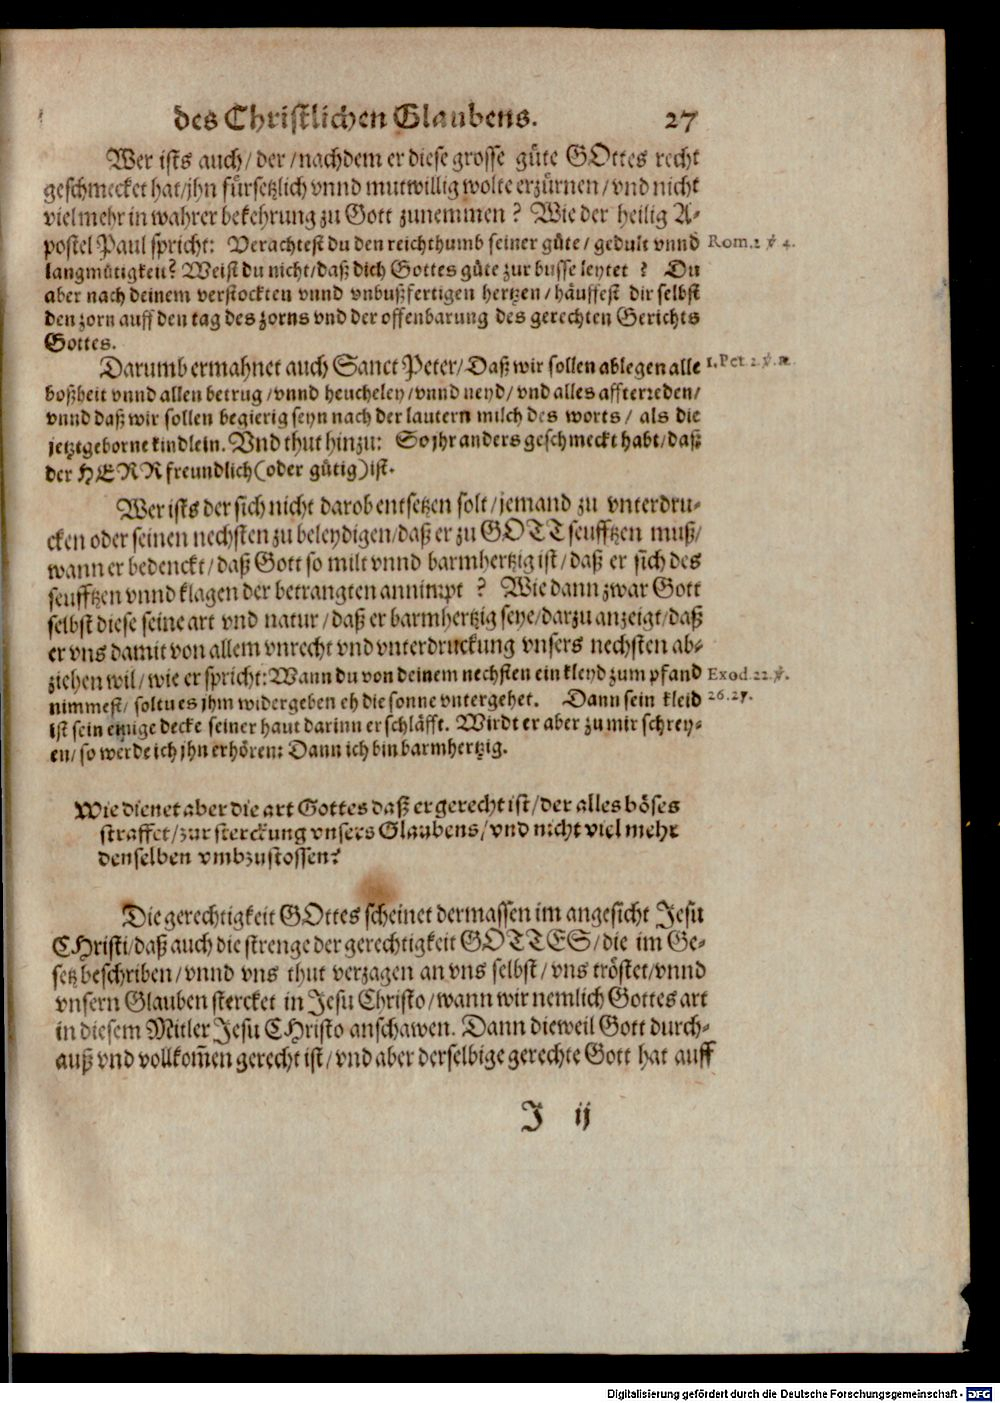 des Christlichen Glaubens. 27
Wer ists auch/ der/ nachdem er diese grosse güte GOttes recht
geschmecket hat/ jhn fürsetzlich vnnd mutwillig wolte erzürnen/ vnd nicht
viel mehr in wahrer bekehrung zu Gott zunemmen? Wie der heilig A-
postel Paul spricht: Verachtest du den reichthumb seiner güte/ gedult vnnd
Rom. 2 ℣ 4.
langmütigkeit? Weist du nicht/ daß dich Gottes güte zur busse leytet? Du
aber nach deinem verstockten vnnd vnbußfertigen hertzen/ häuffest dir selbst
den zorn auff den tag des zorns vnd der offenbarung des gerechten Gerichts
Gottes.
Darumb ermahnet auch Sanct Peter/ Daß wir sollen ablegen alle
1. Pet. 2 ℣.
boßheit vnnd allen betrug/ vnnd heucheley/ vnnd neyd/ vnd alles affterreden/
vnnd daß wir sollen begierig seyn nach der lautern milch des worts/ als die
jetztgeborne kindlein. Vnd thut hinzu: So jhr anders geschmeckt habt/ daß
der HERR freundlich (oder gütig) ist.
Wer ists der sich nicht darob entsetzen solt/ jemand zu vnterdru-
cken oder seinen nechsten zu beleydigen/ daß er zu GOTT seufftzen muß/
wann er bedenckt/ daß Gott so milt vnnd barmhertzig ist/ daß er sich des
seufftzen vnnd klagen der betrangten annimpt? Wie dann zwar Gott
selbst diese seine art vnd natur/ daß er barmhertzig seye/ darzu anzeigt/ daß
er vns damit von allem vnrecht vnd vnterdruckung vnsers nechsten ab-
ziehen wil/ wie er spricht: Wann du von deinem nechsten ein kleyd zum pfand
Exod. 22 ℣.
nimmest/ soltu es jhm widergeben eh die sonne vntergehet. Dann sein kleid
26. 27.
ist sein einige decke seiner haut darinn er schläfft. Wirdt er aber zu mir schrey-
en/ so werde ich jhn erhören: Dann ich bin barmhertzig.
Wie dienet aber die art Gottes daß er gerecht ist/ der alles böses
straffet/ zur sterckung vnsers Glaubens/ vnd nicht viel mehr
denselben vmbzustossen?
Die gerechtigkeit GOttes scheinet dermassen im angesicht Jesu
CHristi/ daß auch die strenge der gerechtigkeit GOTTES/ die im Ge-
setz beschriben/ vnnd vns thut verzagen an vns selbst/ vns tröstet/ vnnd
vnsern Glauben stercket in Jesu Christo/ wann wir nemlich Gottes art
in diesem Mitler Jesu CHristo anschawen. Dann dieweil Gott durch-
auß vnd vollkom̃en gerecht ist/ vnd aber derselbige gerechte Gott hat auff
J ij
Digitalisierung gefördert durch die Deutsche Forschungsgemeinschaft - DFG